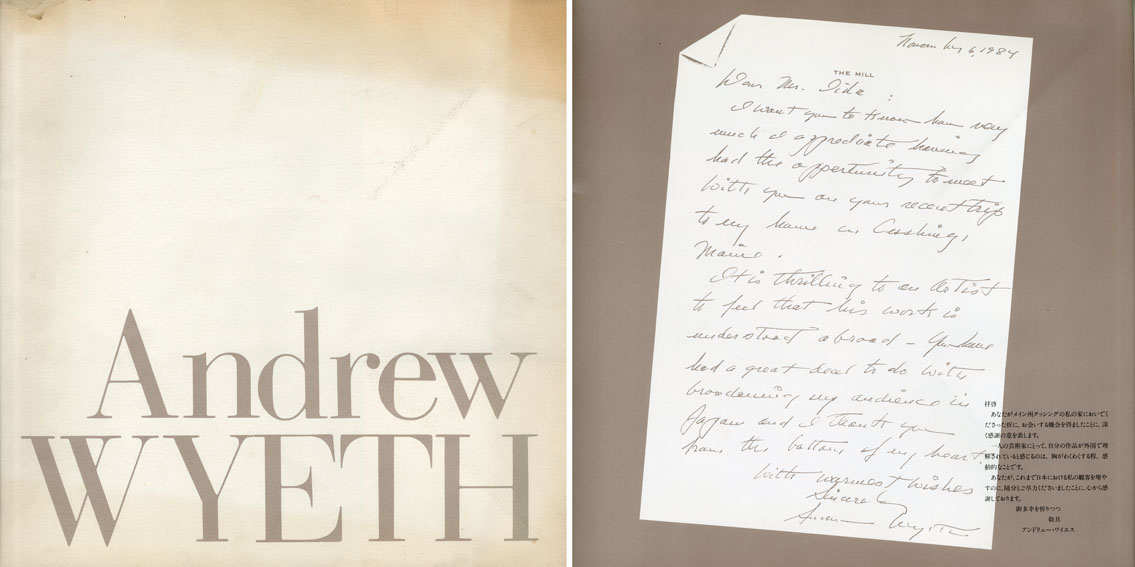 Andrew
WYETH
November 6, 1984
THE MILL
Dear Mr. Iida:
I want you to know how very
much I appreciate having
had the opportunity to meet
with you on your recent trip
to my home in Cushing,
Maine.
It is thrilling to an artist
to feel that his work is
understood abroad – You have
had a great deal to do with
broadening my audience in
Japan and I thank you
from the bottom of my heart.
With warmest wishes
Sincerely
Andrew Wyeth
拝啓
あなたがメイン州クッシングの私の家においでく
ださった折に、お会いする機会を得ましたことに、深
く感謝の意を表します。
一人の芸術家にとって、自分の作品が外国で理
解されていると感じるのは、胸がわくわくする程、感
動的なことです。
あなたが、これまで日本における私の観客を増や
すのに、随分とご尽力くださいましたことに、心から感
謝しております。
御多幸を祈りつつ
敬具
アンドリュー・ワイエス